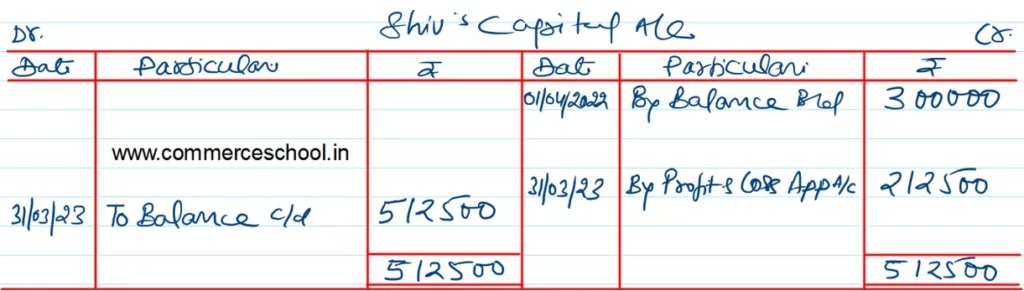 Shiv's Capital A/c
Dr. Cr.
Date Particulars ₹ Date Particulars ₹
01/04/2022 By Balance B/d 300000
www.commerceschool.in
31/03/23 By Profit & Loss App A/c 212500
31/03/23 To Balance c/d 512500
512500 512500